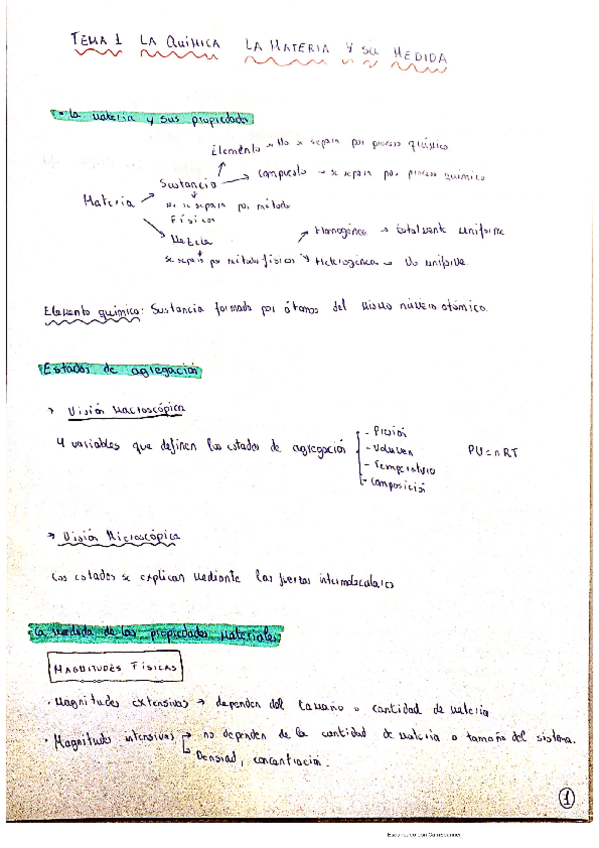 TEMA 1 LA QUÍMICA LA MATERIA Y SU MEDIDA
- La materia y sus propiedades
Elemento → No se separa por proceso químico
Sustancia → Compuesto → se separa por proceso químico
Materia
No se separa por método
Físicos
Mezcla
Homogénea → totalmente uniforme
se separa por métodos físicos Heterogénea → No uniforme
Elemento químico: Sustancia formada por átomos del mismo número atómico.
Estados de agregación
→ Visión Macroscópica
4 variables que definen los estados de agregación
- Presión
- Volumen
- Temperatura
- Composición
PV=nRT
→ Visión Microscópica
Los estados se explican mediante las fuerzas intermoleculares
La medida de las propiedades materiales
MAGNITUDES FÍSICAS
· Magnitudes extensivas → dependen del tamaño o cantidad de materia
· Magnitudes intensivas → no dependen de la cantidad de materia o tamaño del sistema.
Densidad, concentración.
1
Escaneado con CamScanner